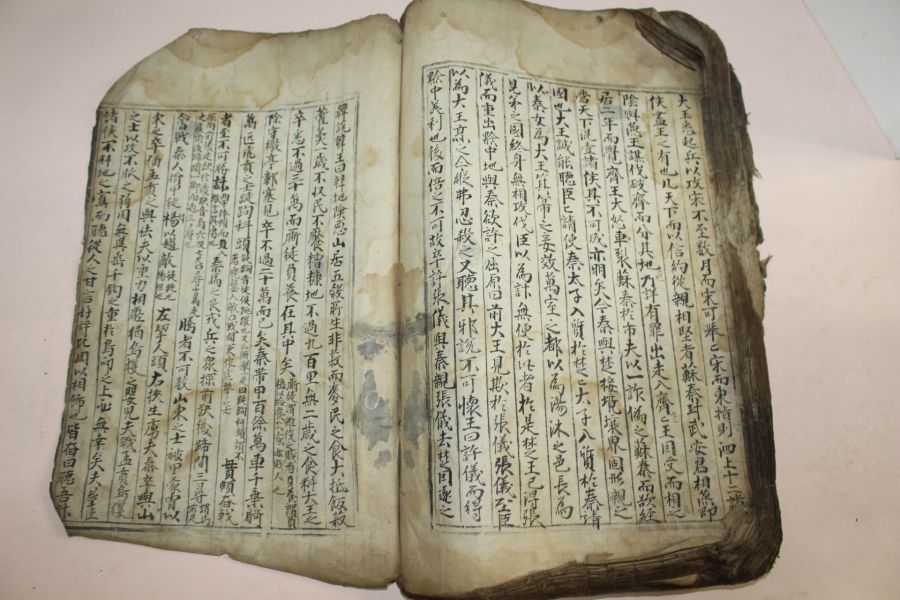 大王悉起兵以攻宋不至數月而宋可擧宋而東指則泗上十二諸
侯盡王之有也凡天下而以信約從親相堅者蘇秦封武安君相燕卽
陰與燕王謀伐破齊而分其地乃詳有罪出走入齊王因受而相之
居二年而覺齊王大怒車裂蘇秦於市夫以一詐偽之蘇秦而欲經
營天下混壹諸侯其不可成亦明矣今秦與楚接境壤界固形親之
國也大王誠能聽臣請使秦太子入質於楚太子入質於秦請
以秦女為大王箕帚之妾效萬室之都以為湯沐之邑長為
昆弟之國終身無相攻伐臣以為計無便於此者於是楚王已得張
儀而重出黔中地與秦欲許之屈原曰前大王見欺於張儀張儀至臣
以為大王烹之今縱弗忍殺之又聽其邪說不可懷王曰許儀而得
黔中美利也後而倍之不可故卒許張儀與秦親張儀去楚因遂之
韓說韓王曰韓地險惡山居五穀所生非菽而麥民之食大抵飯菽
藿羹一歲不收民不饜糟糠地不過九百里無二歲之食料大王之
卒悉不過三十萬而厮徒負養在其中矣
除守徼亭鄣塞見卒不過二十萬而已矣秦帶甲百餘萬車千乘騎
萬匹虎賁之士跿跔科頭 貫頤奮戟
者至不可勝計 秦馬之良戎兵之衆探前趹後蹄間三尋
騰者不可數山東之士被甲蒙胄以
會戰秦人捐甲徒裼以趨敵 左挈人頭右挾生虜夫秦卒與山
東之卒猶孟賁之與怯夫以重力相壓猶烏獲之與嬰兒夫戰孟賁烏獲
之士以攻不服之弱國無異垂千鈞之重於鳥卵之上必無幸矣夫群臣
諸侯不料地之寡而聽從人之甘言好辭比周以相飾也皆奮曰聽吾計